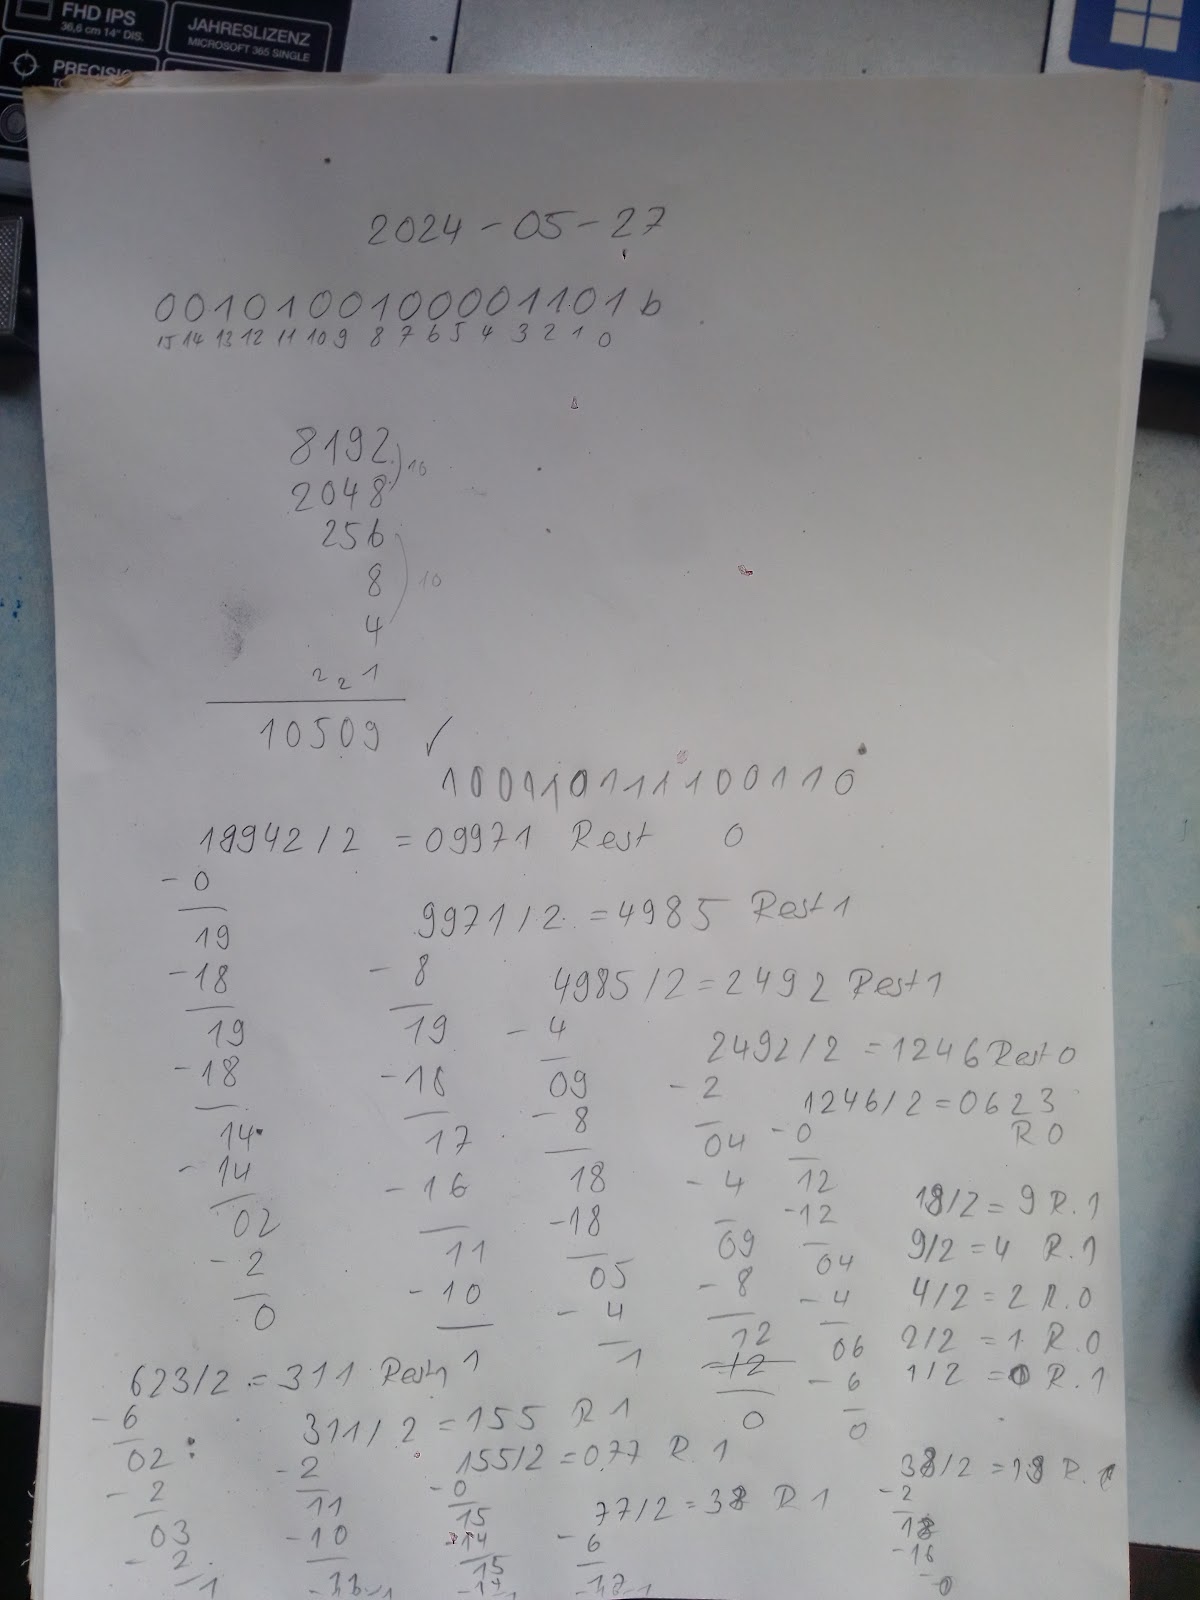 FHD IPS
36,6 cm 14" DIS.
JAHRESLIZENZ
MICROSOFT 365 SINGLE
2024-05-27
0010100100001101b
15 14 13 12 11 10 9 8 7 6 5 4 3 2 1 0
8192
2048
10
256
8
10
4
2 2 1
10509 ✓
100110111100110
19942/2 = 09971 Rest 0
-0
19
-18
19
-18
14
-14
02
-2
0
9971/2 = 4985 Rest 1
-8
19
-18
17
-16
11
-10
1
4985/2 = 2492 Rest 1
-4
09
-8
18
-18
05
-4
1
2492/2 = 1246 Rest 0
-2
04
-4
09
-8
12
12
0
1246/2 = 0623
R 0
-0
12
-12
04
-4
06
-6
0
18/2 = 9 R.1
9/2 = 4 R.1
4/2 = 2 R.0
2/2 = 1 R.0
1/2 = 0 R.1
623/2 = 311 Rest 1
-6
02
-2
03
-2
1
311/2 = 155 R 1
-2
11
-10
155/2 = 077 R.1
-0
15
-14
15
77/2 = 38 R 1
-6
38/2 = 19 R.
-2
18
-16
0